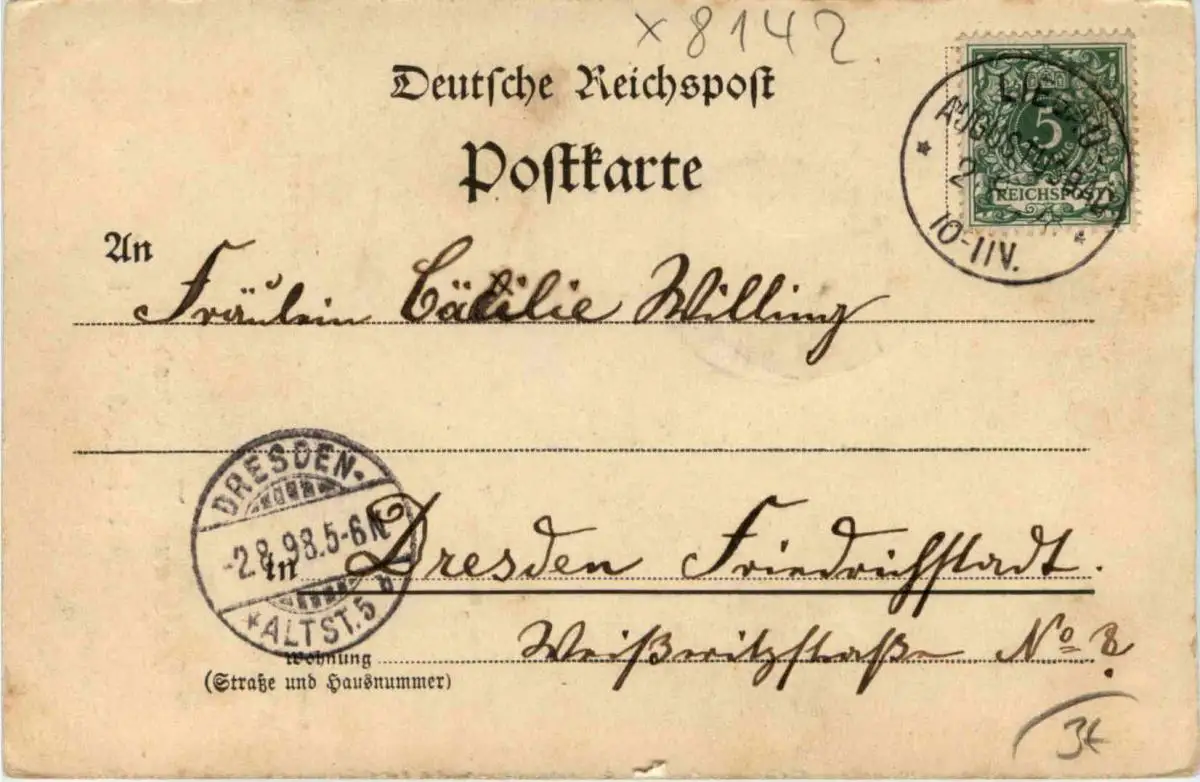 x 8142
Deutsche Reichspost
Postkarte
5
REICHSPOST
AUGUSTUSBAD
10-11V.
An
Fräulein Cäcilie Willing
DRESDEN-
-2.8.98.5-6N.
*ALTST.5 b
in Dresden Friedrichstadt.
Wohnung Weißeritzstraße No 8.
(Straße und Hausnummer)
3€